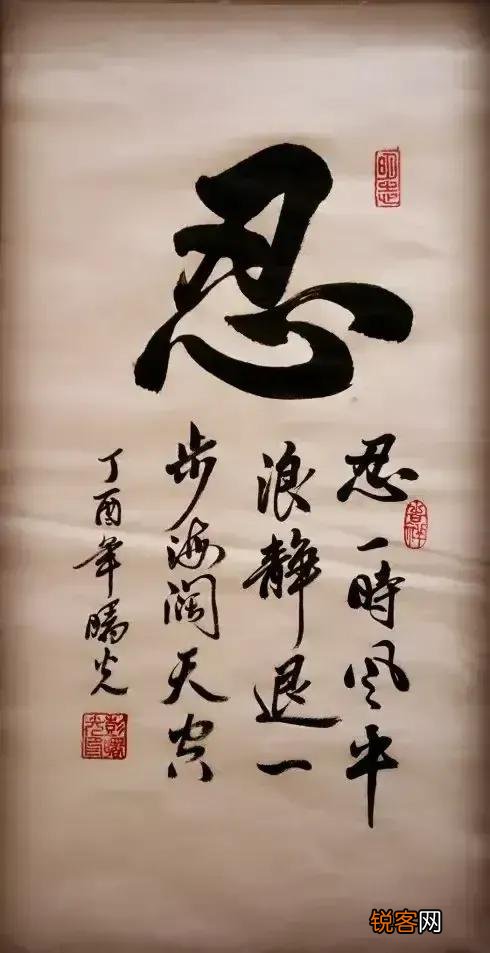 忍
忍一時风平
浪静退一
步海阔天空
丁酉年
光
锐客网